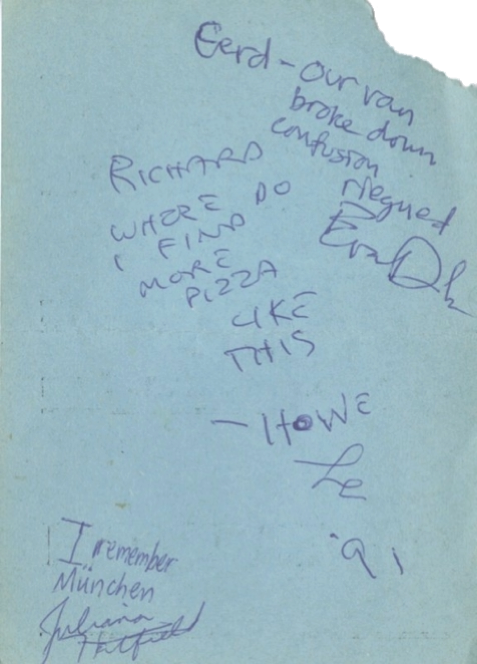 Gerd - our van
broke down
confusion
riegned
RICHARD
WHERE DO
I FIND
MORE
PIZZA
LIKE
THIS
- HOWE
'91
I remember
München
Juliana
Hatfield